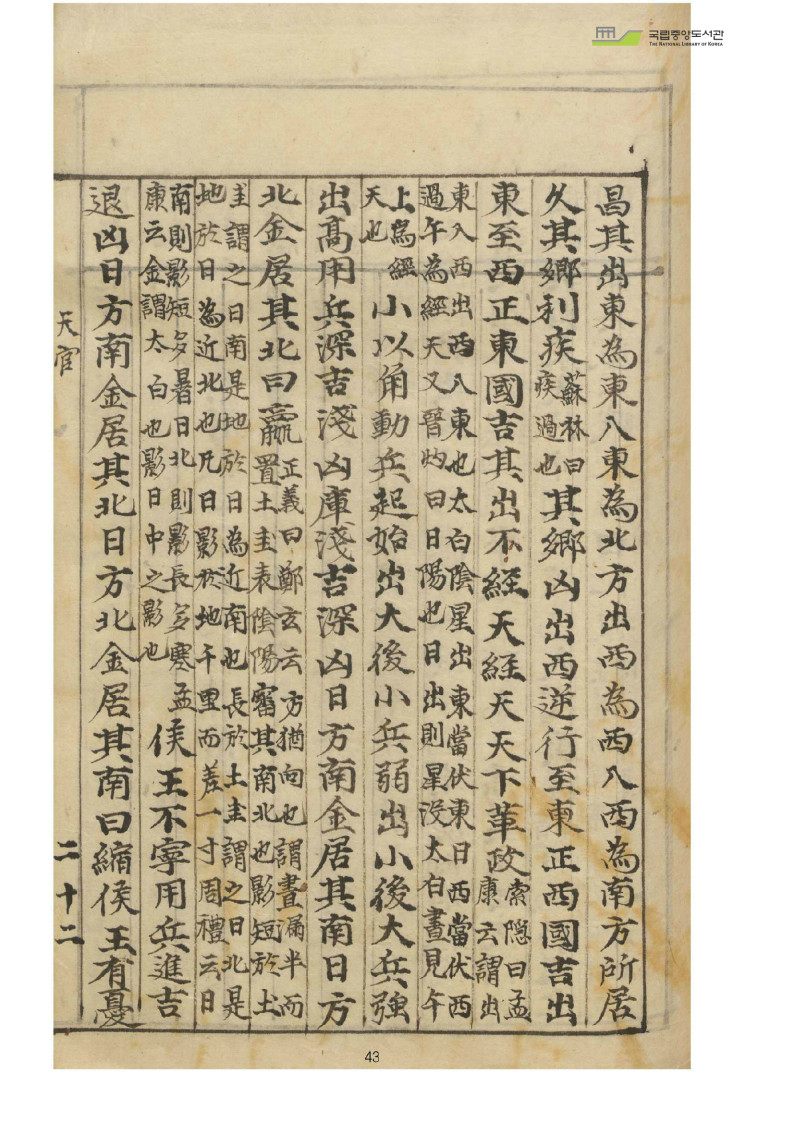 국립중앙도서관
THE NATIONAL LIBRARY OF KOREA
昌其出東為東入東為北方出西為西入西為南方所居
久其鄉利疾蘇林曰
疾過也其鄉凶出西逆行至東正西國吉出
東至西正東國吉其出不經天經天天下革政索隠曰孟
康云謂出
東入西出西入東也太白陰星出東當伏東日西當伏西
過午為經天又晉灼曰日陽也日出則星没太白晝見午
上為經
天也小以角動兵起始出大後小兵弱出小後大兵強
出高用兵深吉淺凶庫淺吉深凶日方南金居其南日方
北金居其北曰贏正義曰鄭玄云方猶向也謂晝漏半而
置土圭表陰陽審其南北也影短於土
圭謂之日南是地於日為近南也長於土圭謂之日北是
地於日為近北也凡日影於地千里而差一寸周禮云日
南則影短多暑日北則影長多寒孟
康云金謂太白也影日中之影也侯王不寧用兵進吉
退凶日方南金居其北日方北金居其南曰縮侯王有憂
天官
二十二
43